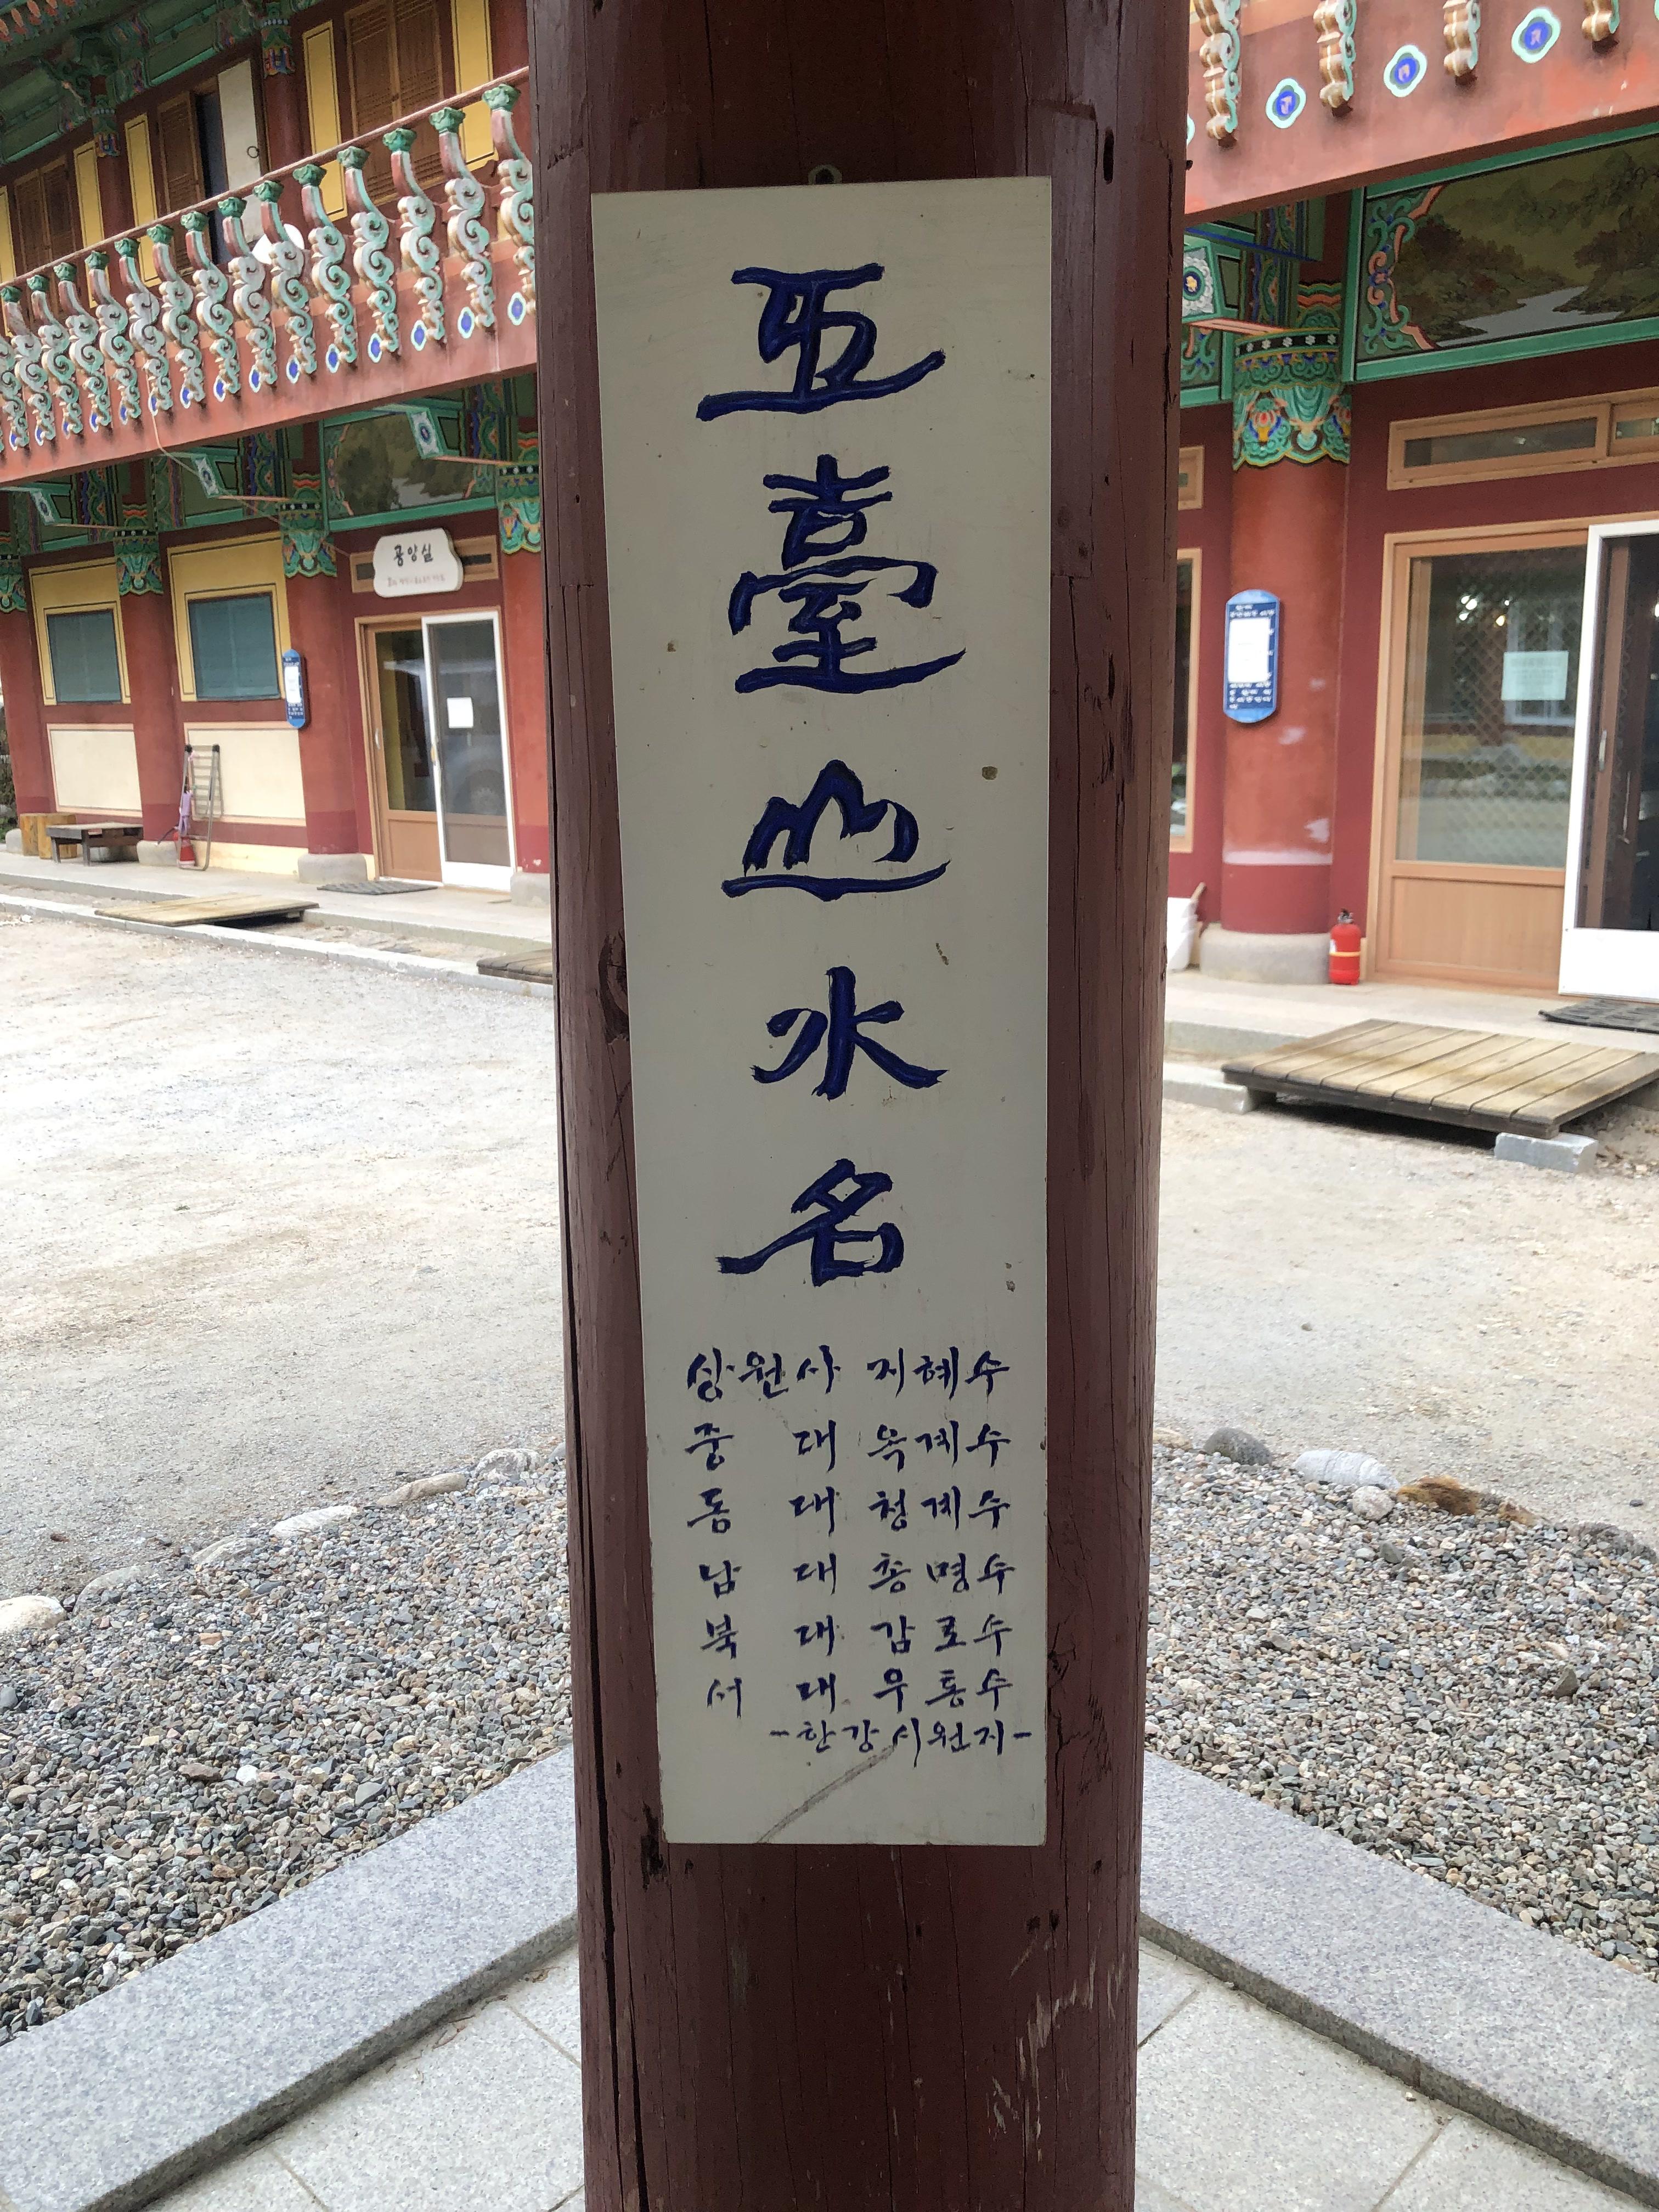 五
臺
山
水
名
상원사 지혜수
중 대 옥계수
동 대 청계수
남 대 총명수
북 대 감로수
서 대 우통수
-한강시원지-
공양실